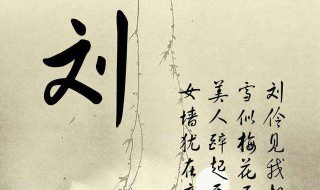 刘
刘伶见我
雪似梅花
美人醉起
女墙犹在